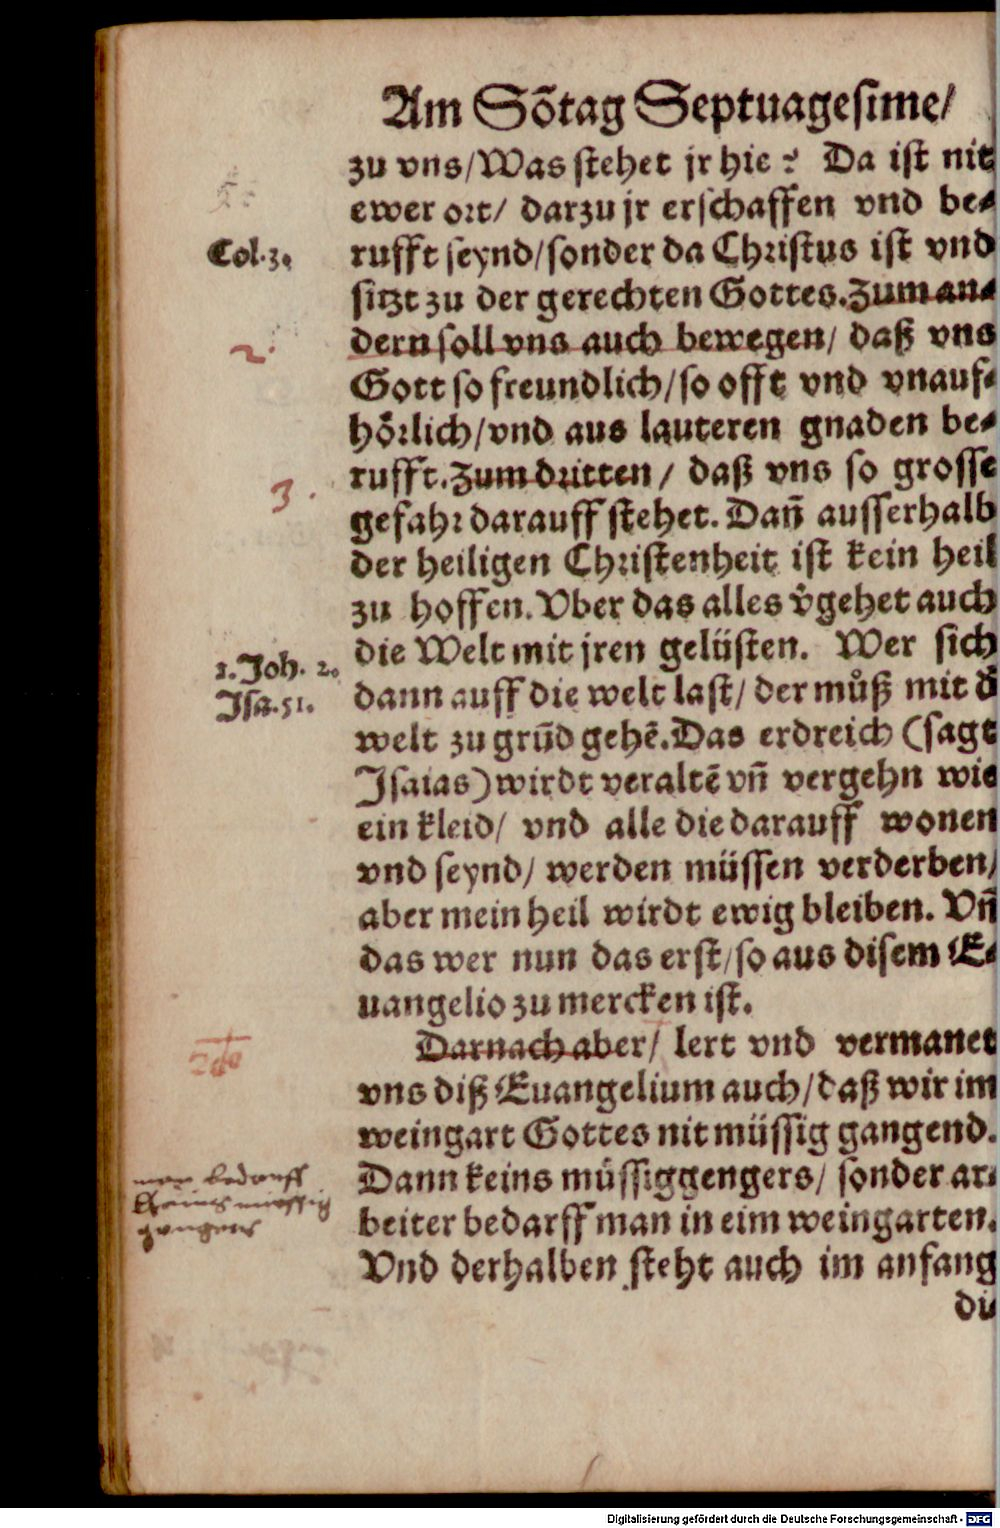 Am Sõtag Septuagesime/
zu vns/Was stehet jr hie? Da ist nit
ewer ort/ darzu jr erschaffen vnd be⸗
Col.3.
rufft seynd/sonder da Christus ist vnd
sitzt zu der gerechten Gottes.Zum an⸗
2.
dern soll vns auch bewegen/ daß vns
Gott so freundlich/so offt vnd vnauf⸗
hörlich/vnd aus lauteren gnaden be⸗
3.
rufft.Zum dritten/ daß vns so grosse
gefahr darauff stehet. Dañ ausserhalb
der heiligen Christenheit ist kein heil
zu hoffen. Vber das alles v̊gehet auch
1.Joh. 2.
die Welt mit jren gelüsten. Wer sich
Isa.51.
dann auff die welt last/ der můß mit d̓
welt zu grũd gehẽ.Das erdreich (sagt
Isaias) wirdt veraltẽ vñ vergehn wie
ein kleid/ vnd alle die darauff wonen
vnd seynd/ werden müssen verderben/
aber mein heil wirdt ewig bleiben. Vñ
das wer nun das erst/so aus disem E⸗
uangelio zu mercken ist.
2do
Darnach aber/ lert vnd vermanet
vns diß Euangelium auch/daß wir im
weingart Gottes nit müssig gangend.
man bedarff
keins müssig
gengers
Dann keins müssiggengers/ sonder ar⸗
beiter bedarff man in eim weingarten.
Vnd derhalben steht auch im anfang
di
Digitalisierung gefördert durch die Deutsche Forschungsgemeinschaft - DFG